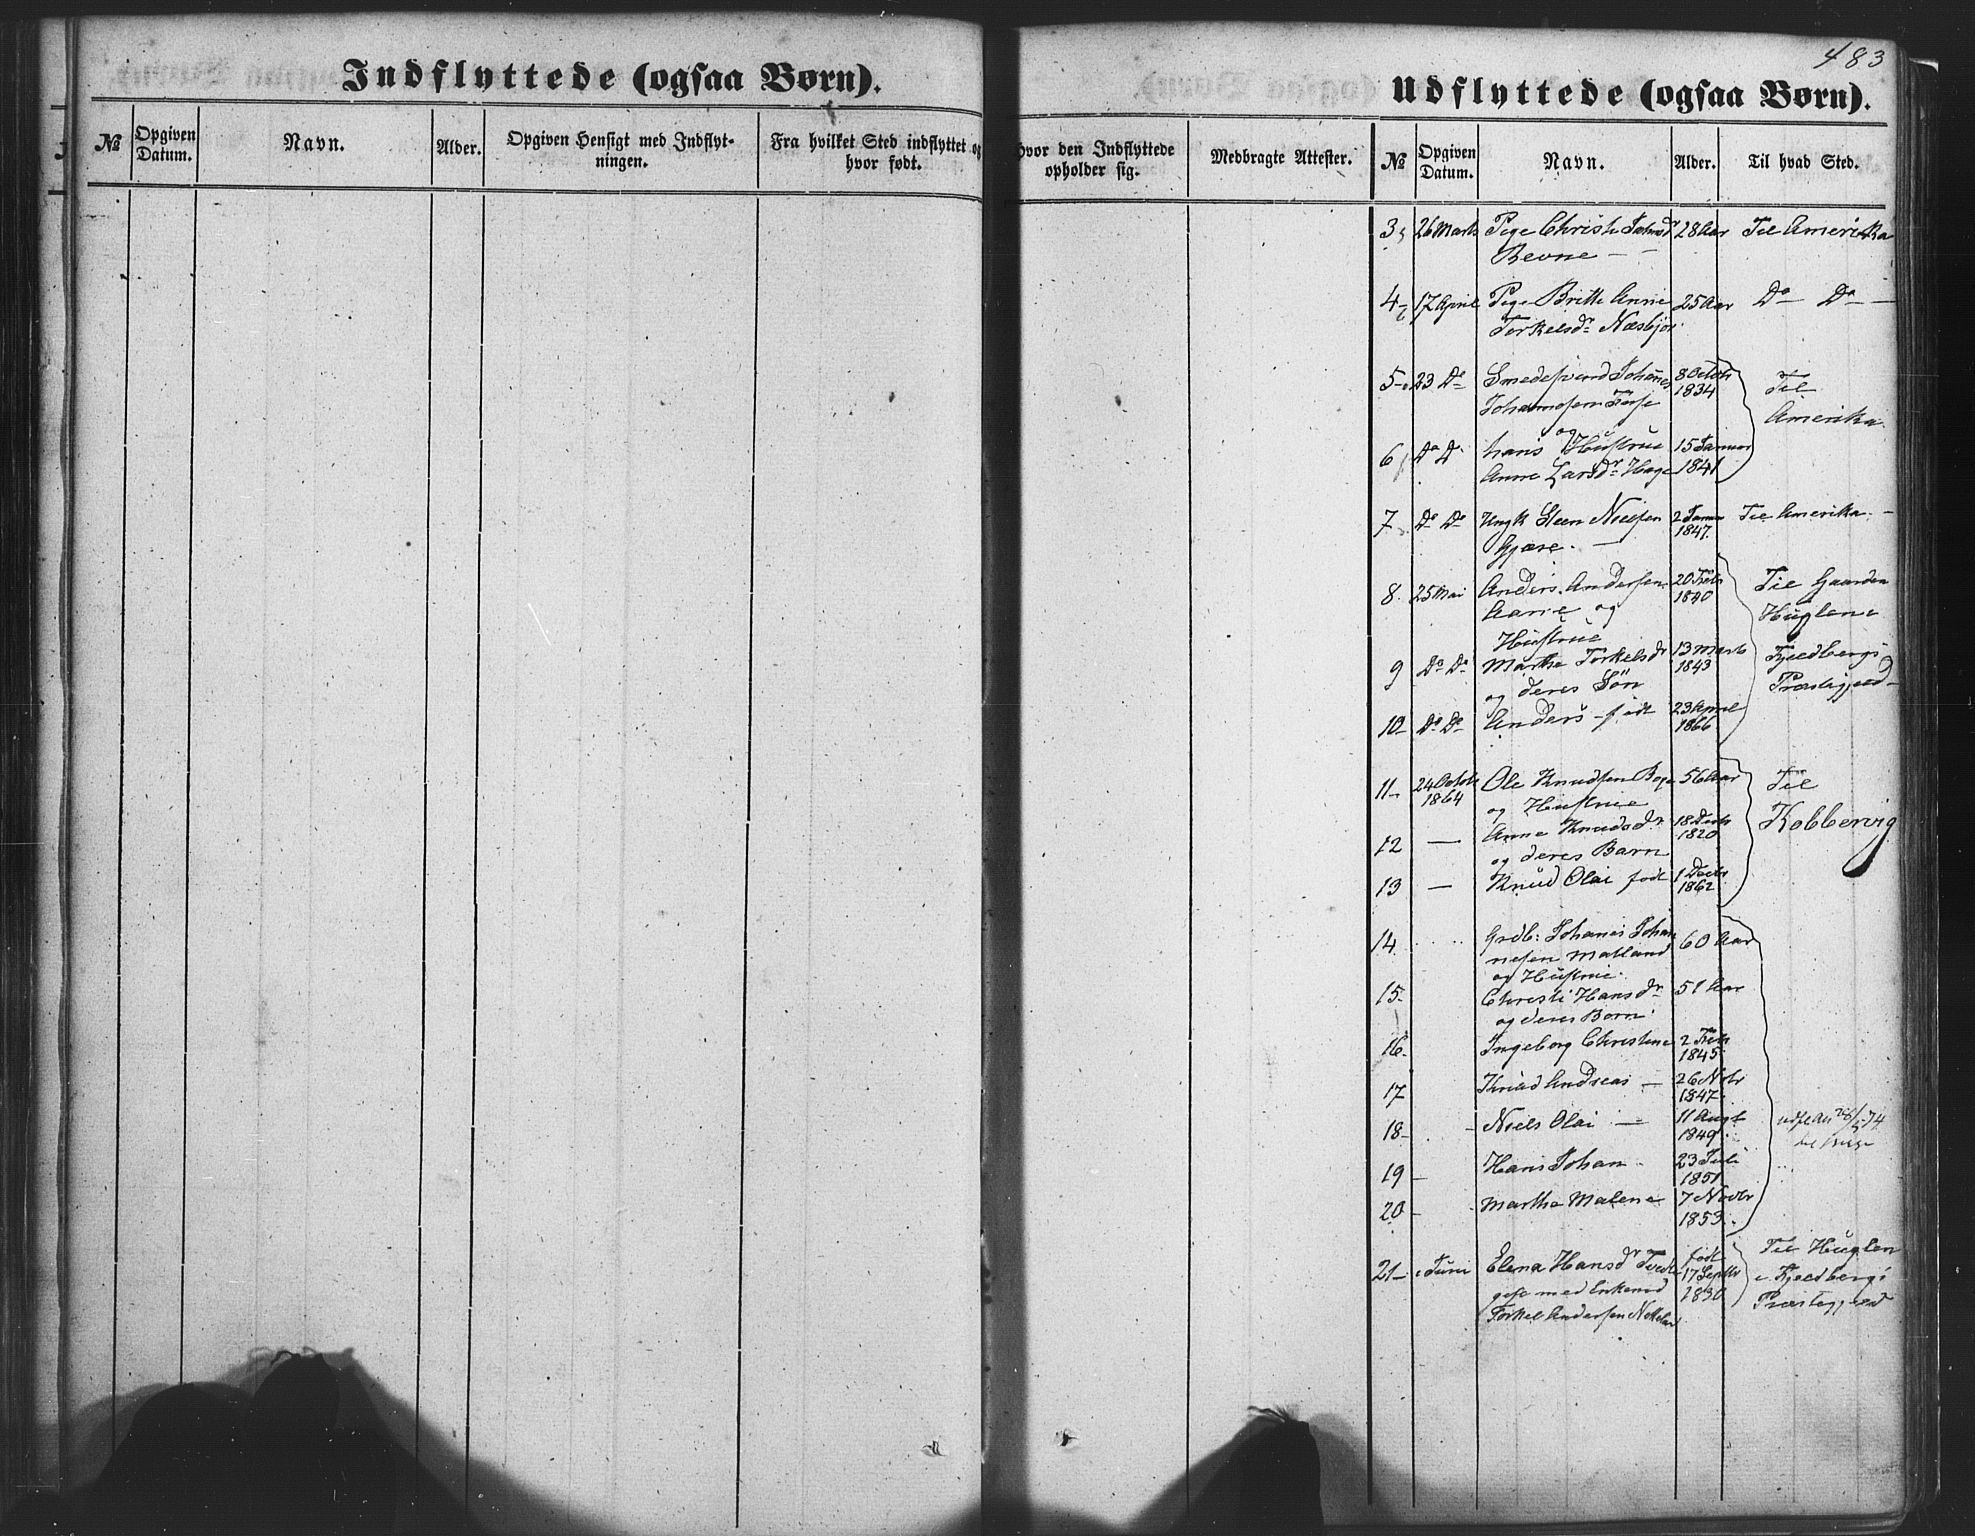 483
Indflyttede (ogsaa Børn).
№
Opgiven Datum.
Navn.
Alder.
Opgiven Hensigt med Indflyt-
ningen.
Fra hvilket Sted indflyttet og
hvor født.
hvor den Indflyttede
opholder sig.
Medbragte Attester.
Udflyttede (ogsaa Børn).
№
Opgiven Datum.
Navn.
Alder.
Til hvad Sted.
3 26 Marts Pige Christi 28 Aar Til Amerika
Revne —
4 17 April Pige Britte Anne 25 Aar Do — Do —
Torkelsdr Næsbjør
5 23 Do Smedesvend Johanes 8 Octbr 1834 Til
Johannesen Amerika
og
6 Do Do hans Hustrue 15 Januar 1841
Anne Larsdr Hage
7 Do Do Ungk Steen Nielsen 2 Januar 1847. Til Amerika —
Gjære. —
8 25 Mai Anders Andersen 20 Febr 1840 Til Gaarden
og Huglen i
Hustrue
9 Do Do Marthe Torkelsdr 13 Marts 1843 Fjeldbergs
og deres Søn Præstegjeld —
10 Do Do Anders — født 23 April 1866
11 24 Octobr 1864 Ole Knudsen 56 Aar Til
og Hustrue Kobbervig
12 — Anne Knudsdr 18 Decbr 1820
og deres Barn
13 — Knud Olai født 1 Decbr 1862
14 Grdb: Johanes Johan 60 Aar
nesen Matland
og Hustrue.
15 Christi Hansdr 51 Aar
og deres Børn.
16 Ingeborg Christine 2 Febr 1845
17 Knud Andreas — 26 Novbr 1847
18 Niels Olai — 11 Augt 1849
28/5 74
til
19 Hans Johan 23 Juli 1851
20 Marthe Malene 7 Novbr 1853.
21 — i Juni Elena Hansdr født Til Huglen
gift med Enkemd 17 Septbr 1830 i Fjeldbergs
Torkel Andersen Præstegjeld